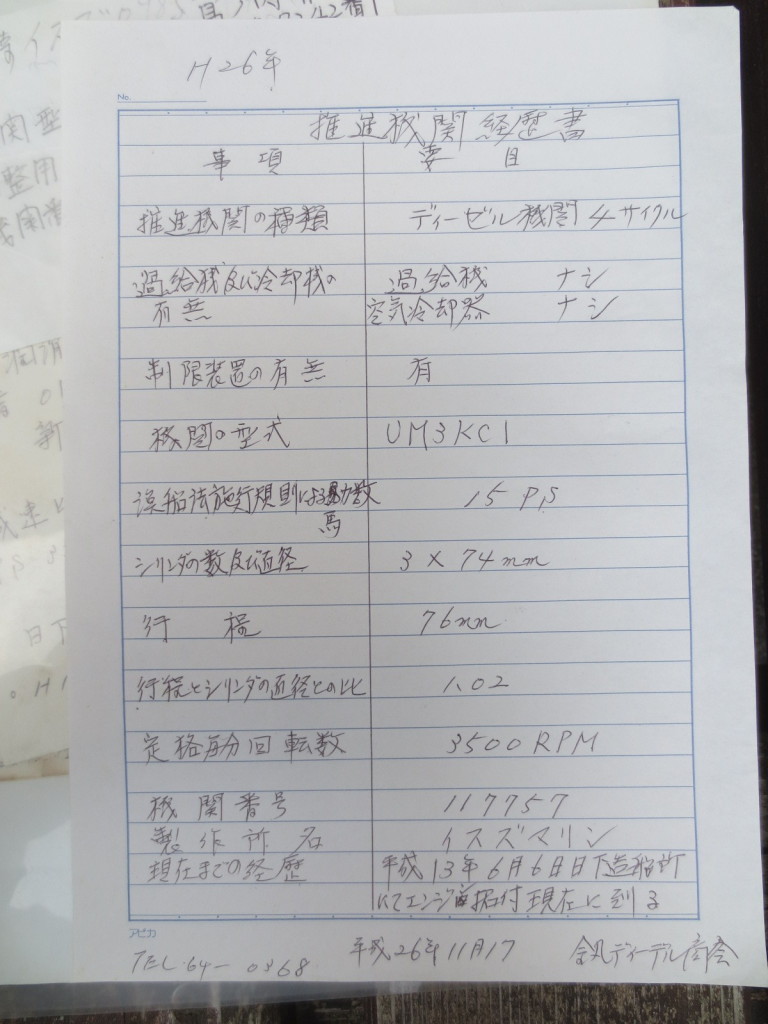 H26年
No.
推進機関経歴書
事項 要目
推進機関の種類 ディーゼル機関4サイクル
過給機及び冷却機の 過給機 ナシ
有無 空気冷却器 ナシ
制限装置の有無 有
機関の型式 UM3KC1
漁船法施行規則による馬力数 15PS
シリンダの数及び直径 3×74mm
行程 76mm
行程とシリンダの直径との比 1.02
定格毎分回転数 3500RPM
機関番号 117757
製作所名 イスズマリン
現在までの経歴 平成13年6月6日日下造船所
にてエンジン据付現在に到る
アピカ
TEL.64-0368 平成26年11月17 ディーゼル商会